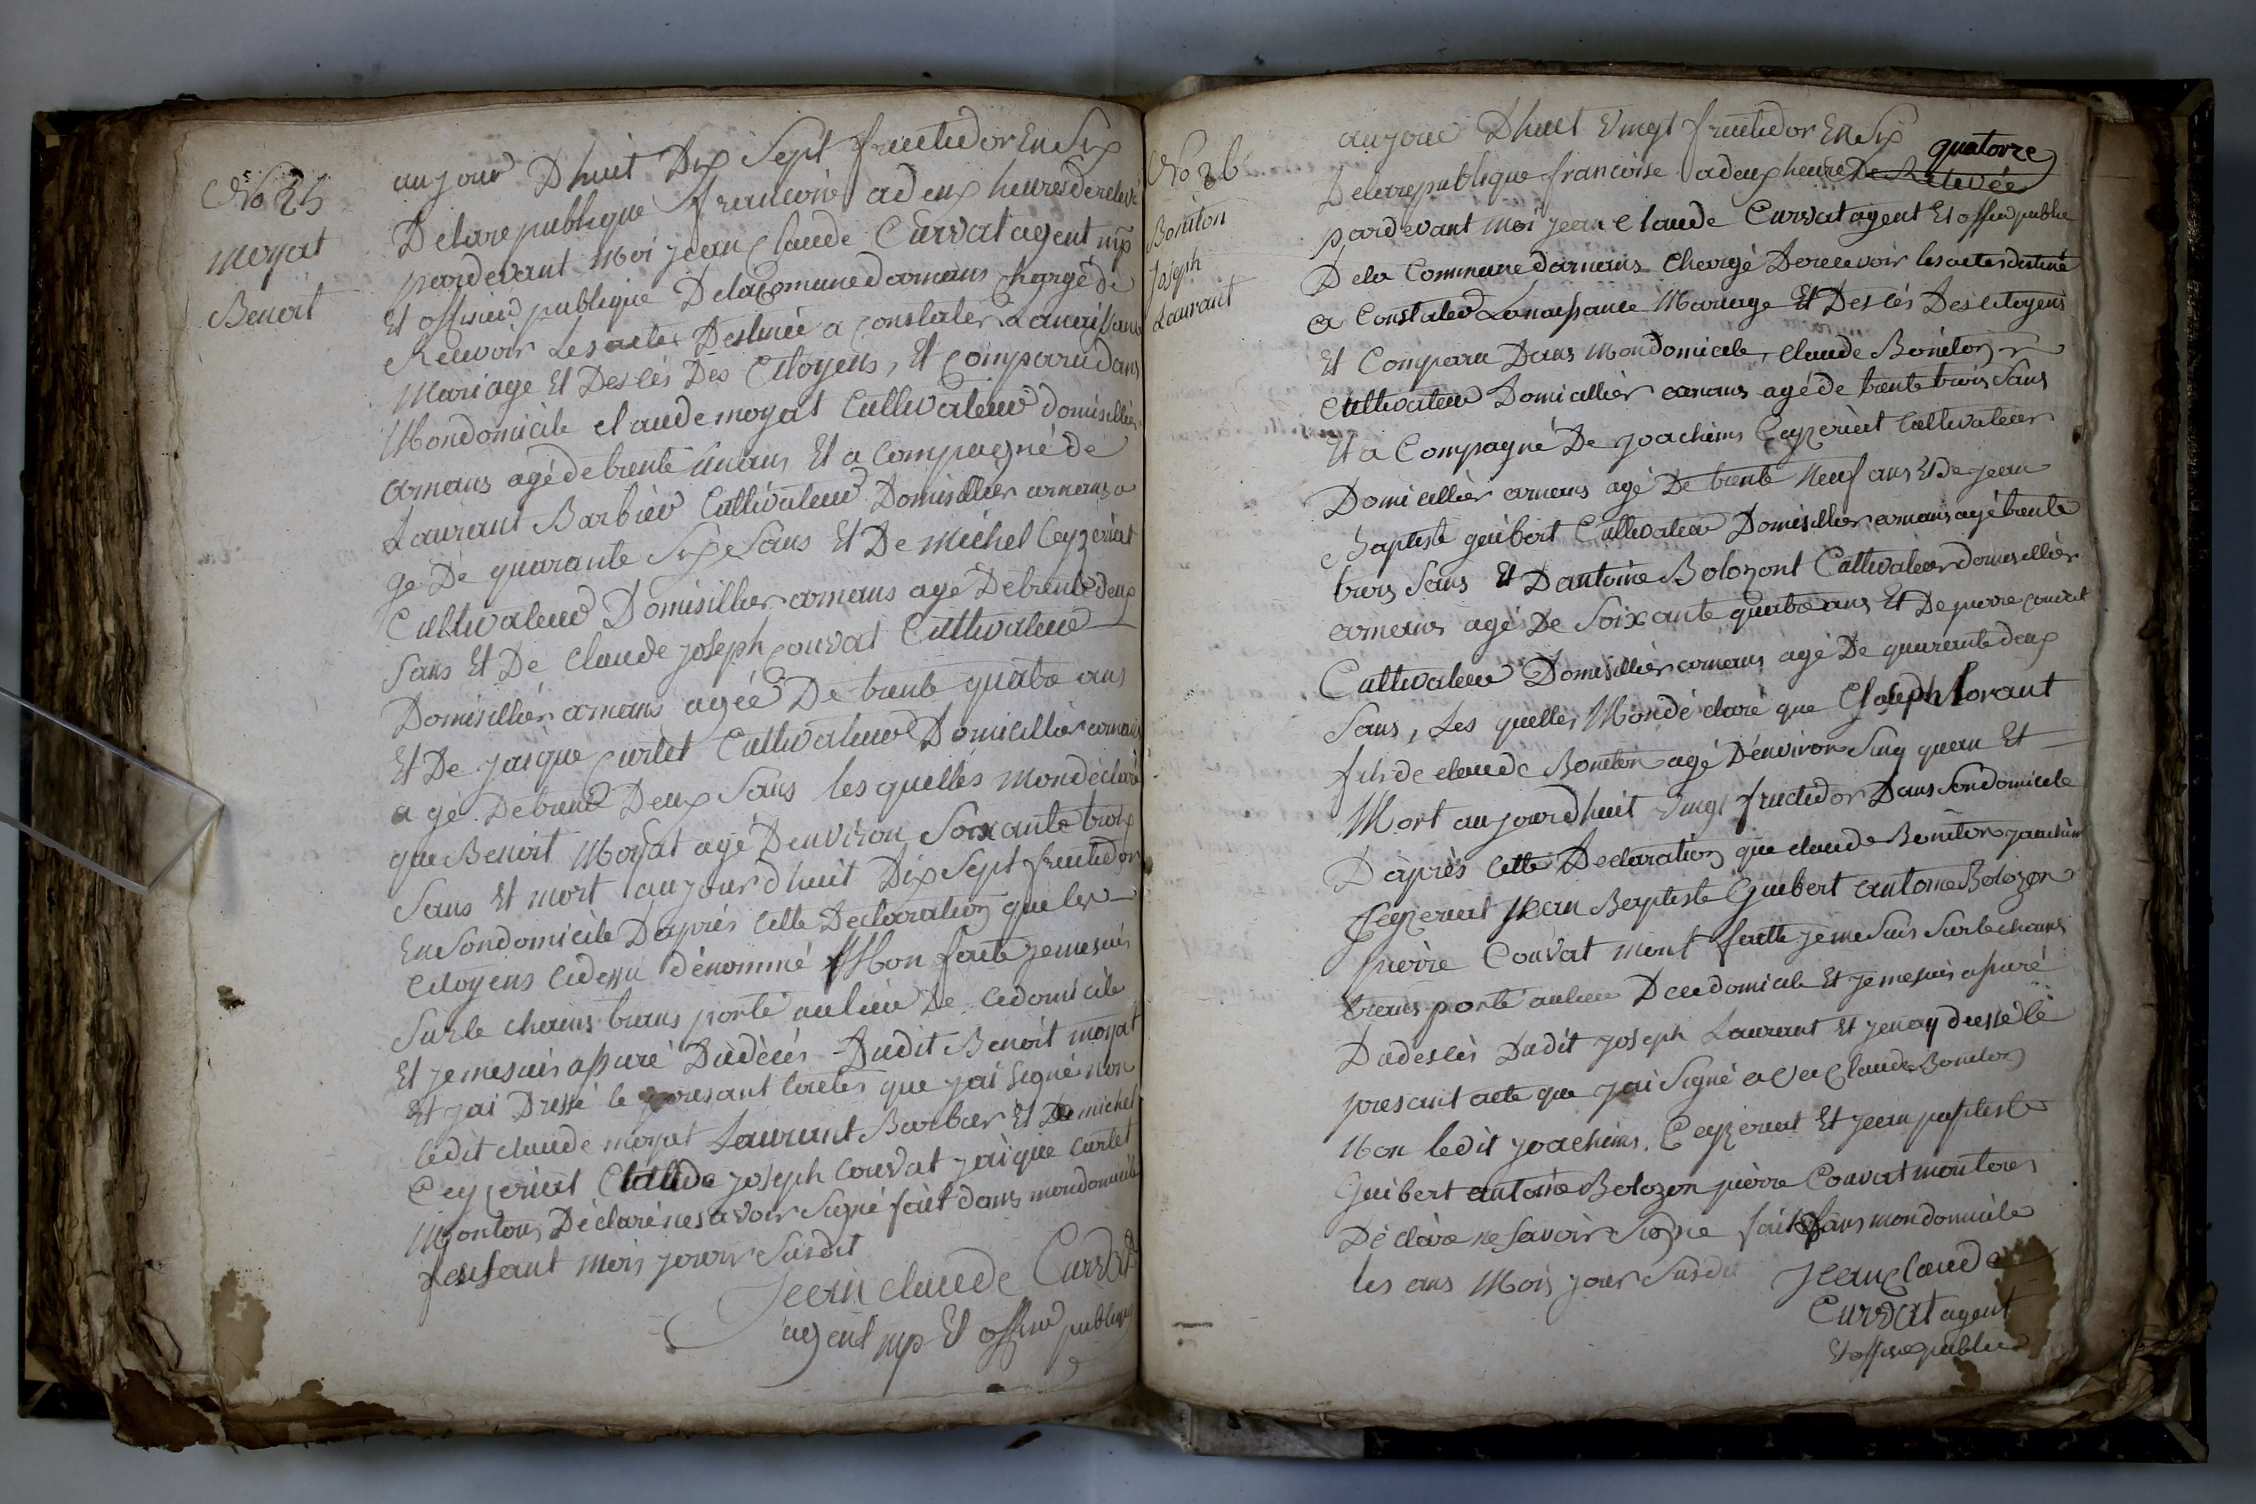 No 25
moyat
Benoit
aujour Dhuit Dix Sept fructidor En Six
Delarepublique francoise a deux heures derelevé
pardevant Moi jean Claude Curvat agent mp
Et officier publique Dela Comune darnans chargé de
Recevoir Les actes Destinée a constater Lanaissance
Mariage Et Decés Des Citoyens, Et comparu dans
Mondomicile claude moyat Cultivateur domisillier
arnans agé de trente unans Et a Compagné de
Laurant Barbier Cultivateur Domisillier arnans a
gé De quarante Six Sans Et De michel Ceyzeriat
Cultivateur Domisillier arnans agé De trente deux
Sans Et De Claude joseph Couvat Cultivateur
Domisillier arnans agée De trente quatre ans
Et De jaique Curlet Cultivateur Domicillier arnans
a gé De trente Deux Sans les quelles mondéclaré
que Benoit Moyat agé Denviron Soixante trois
Sans Et mort aujourdhuit Dix Sept fructidor
En Sondomicile Daprés Cette Declaration que les
Citoyens cidessu dénommé Mon faite jemesuis
Surle chams trans porté aulieu De cedomicile
Et jemesuis assuré Dudécés Dudit Benoit moyat
Et jai Dressé le presant lactes que jai Signé non
ledit claude moyat Laurant Barbier Et De michel
Ceyzeriat Claude joseph Couvat jaique Curlet
Montous Déclaré nesavoir Signé fait dans mondomicile
les ans mois jour Susdit
Jean claude Curvat
agent mp Et officier publique
No 26
Boniton
Joseph
Laurant
aujour Dhuit Vingt fructidor En Six
quatorze
Delarepublique francoise a deux heure De Relevée
pardevant moi jean Claude Curvat agent Et officier publie
De la Commune darnans Chargé De recevoir les actes destiné
a Constater Lanaissance Mariage Et Des cés Des citoyens
Et Comparu Dans Mondomicile, Claude Boniton
Cultivateur Domicillier arnans agé de trente trois Sans
Et a Compagné De joachims Ceyzeriat Cultivateur
Domicillier arnans agé De trente Neuf ans Et De jean
Baptiste guibert Cultivateur Domisillier arnans agé trente
trois Sans Et Dantoine Bolozont Cultivateur domisillier
arnans agé De Soixante quatre ans Et De pierre couvat
Cultivateur Domisillier arnans agé De quarante deux
Sans, Les quelles Mondé claré que Joseph lorant
fils de claude Boniton agé Denviron Sinq quan Et
Mort aujourdhuit vingt fructidor Dans Sondomicile
Daprès Cette Declaration que claude Boniton jauchim
Ceyzeriat Jean Baptiste Guibert antoine Bolozon
pierre Couvat mont faitte jeme Suis Surle chams
trans porté aulieu Decedomicile Et jemesuis assuré
Dudescés Dudit joseph Laurant Et jenay dressé le
presant acte que jai Signé avec Claude Boniton
Non ledit joachims Ceyzeriat Et jean paptiste
Guibert antoine Bolozon pierre Couvat montores
Déclare ne Savoir Signe fait Dans mondomicile
les ans Mois jour Susdit
Jean Claude
Curvat agent
Et officie publie